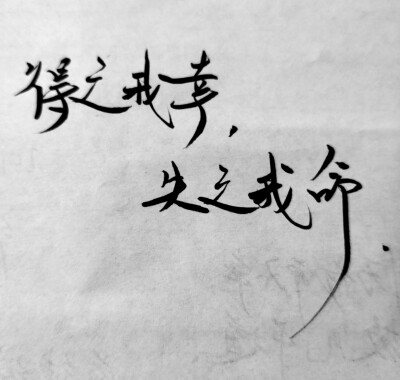 得之我幸,
失之我命.